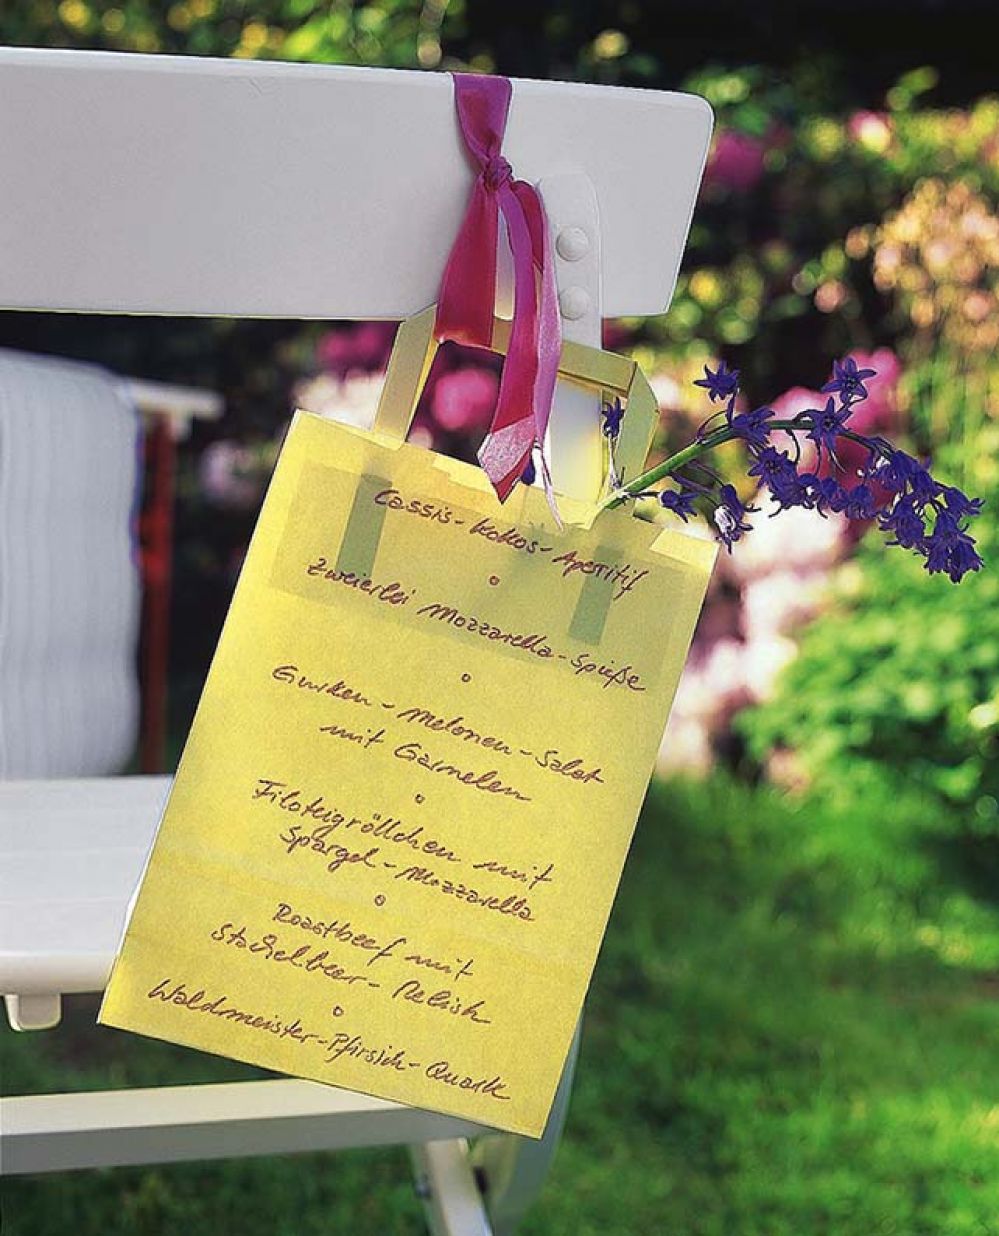 Cassis-Kokos-Aperitif
Zweierlei Mozzarella-Spieße
Gurken-Melonen-Salat
mit Garnelen
Filoteigröllchen mit
Spargel-Mozzarella
Roastbeef mit
Stachelbeer-Relish
Waldmeister-Pfirsich-Quark